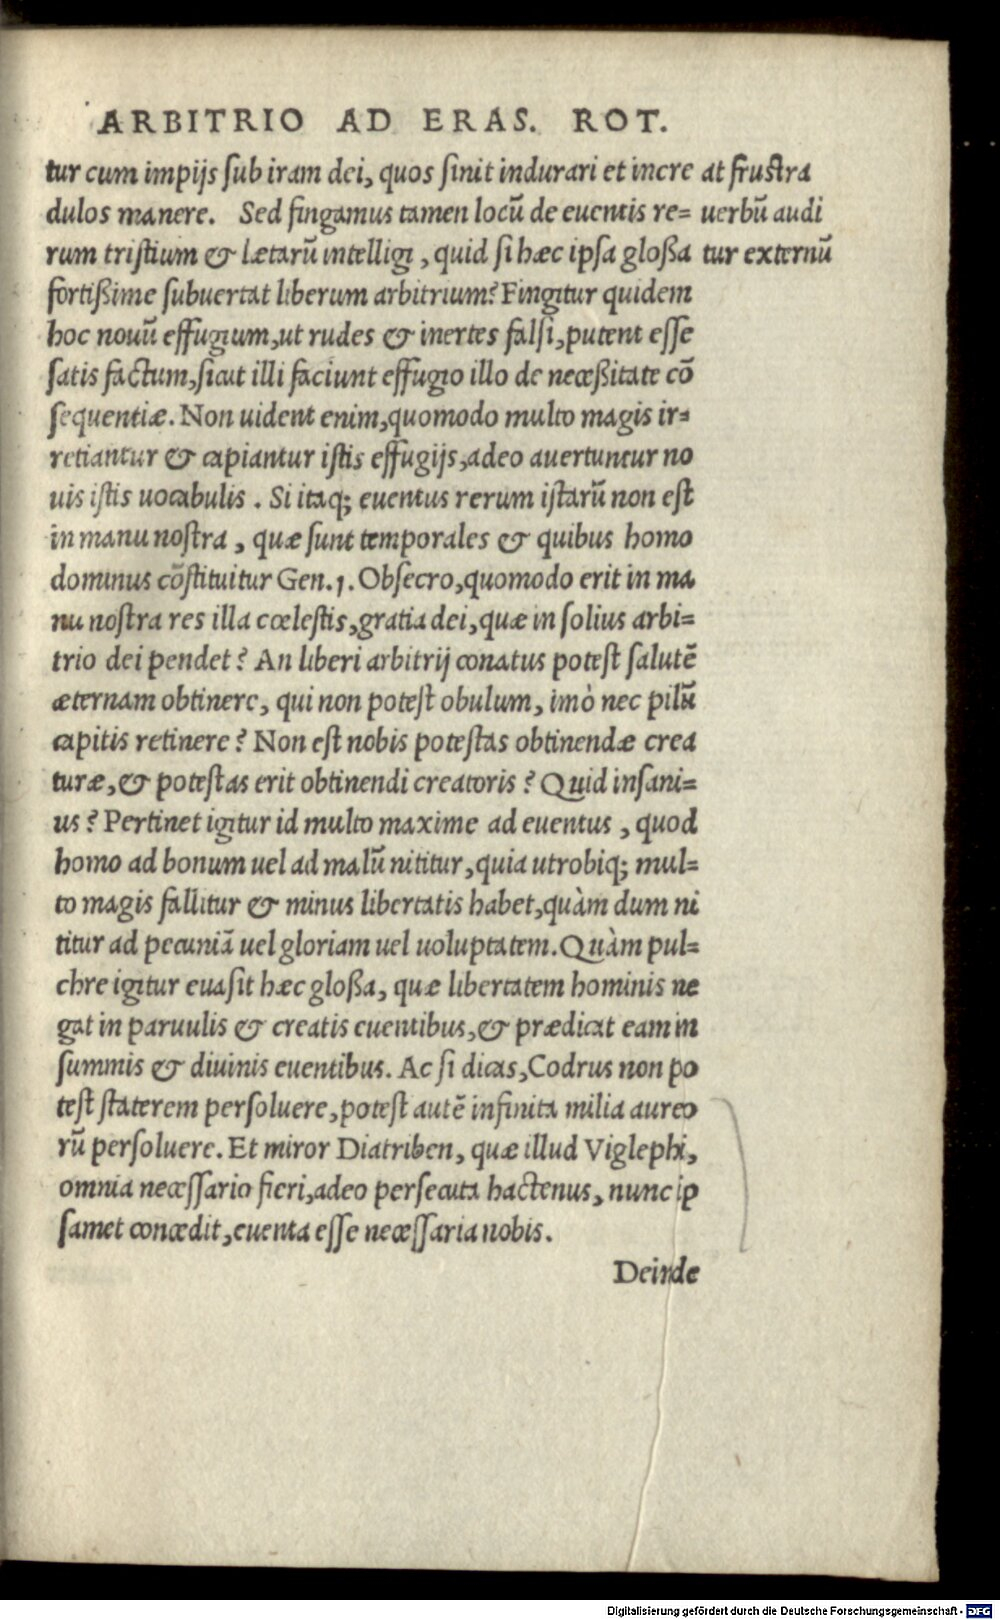 ARBITRIO AD ERAS. ROT.
tur cum impijs sub iram dei, quos sinit indurari et incre at frustra
dulos manere. Sed fingamus tamen locũ de euentis re= uerbũ audi
rum tristium & lætarũ intelligi, quid si hæc ipsa gloßa tur externũ
fortißime subuertat liberum arbitrium? Fingitur quidem
hoc nouũ effugium, ut rudes & inertes falsi, putent esse
satis factum, sicut illi faciunt effugio illo de neceßitate cõ
sequentiæ. Non uident enim, quomodo multo magis ir=
retiantur & capiantur istis effugijs, adeo auertuntur no
uis istis uocabulis. Si itaq; euentus rerum istarũ non est
in manu nostra, quæ sunt temporales & quibus homo
dominus cõstituitur Gen. 1. Obsecro, quomodo erit in ma
nu nostra res illa cœlestis, gratia dei, quæ in solius arbi=
trio dei pendet? An liberi arbitrij conatus potest salutẽ
æternam obtinere, qui non potest obulum, imò nec pilũ
capitis retinere? Non est nobis potestas obtinendæ crea
turæ, & potestas erit obtinendi creatoris? Quid insani=
us? Pertinet igitur id multo maxime ad euentus, quod
homo ad bonum uel ad malũ nititur, quia utrobiq; mul=
to magis fallitur & minus libertatis habet, quàm dum ni
titur ad pecuniã uel gloriam uel uoluptatem. Quàm pul=
chre igitur euasit hæc gloßa, quæ libertatem hominis ne
gat in paruulis & creatis euentibus, & prædicat eam in
summis & diuinis euentibus. Ac si dicas, Codrus non po
test staterem persoluere, potest autẽ infinita milia aureo
rũ persoluere. Et miror Diatriben, quæ illud Viglephi,
omnia necessario fieri, adeo persecuta hactenus, nunc ip
samet concedit, euenta esse necessaria nobis.
Deinde
Digitalisierung gefördert durch die Deutsche Forschungsgemeinschaft - DFG